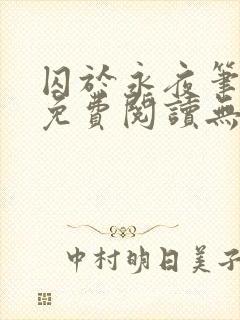 囚於永夜筆
免費閱讀無
中村明日美子